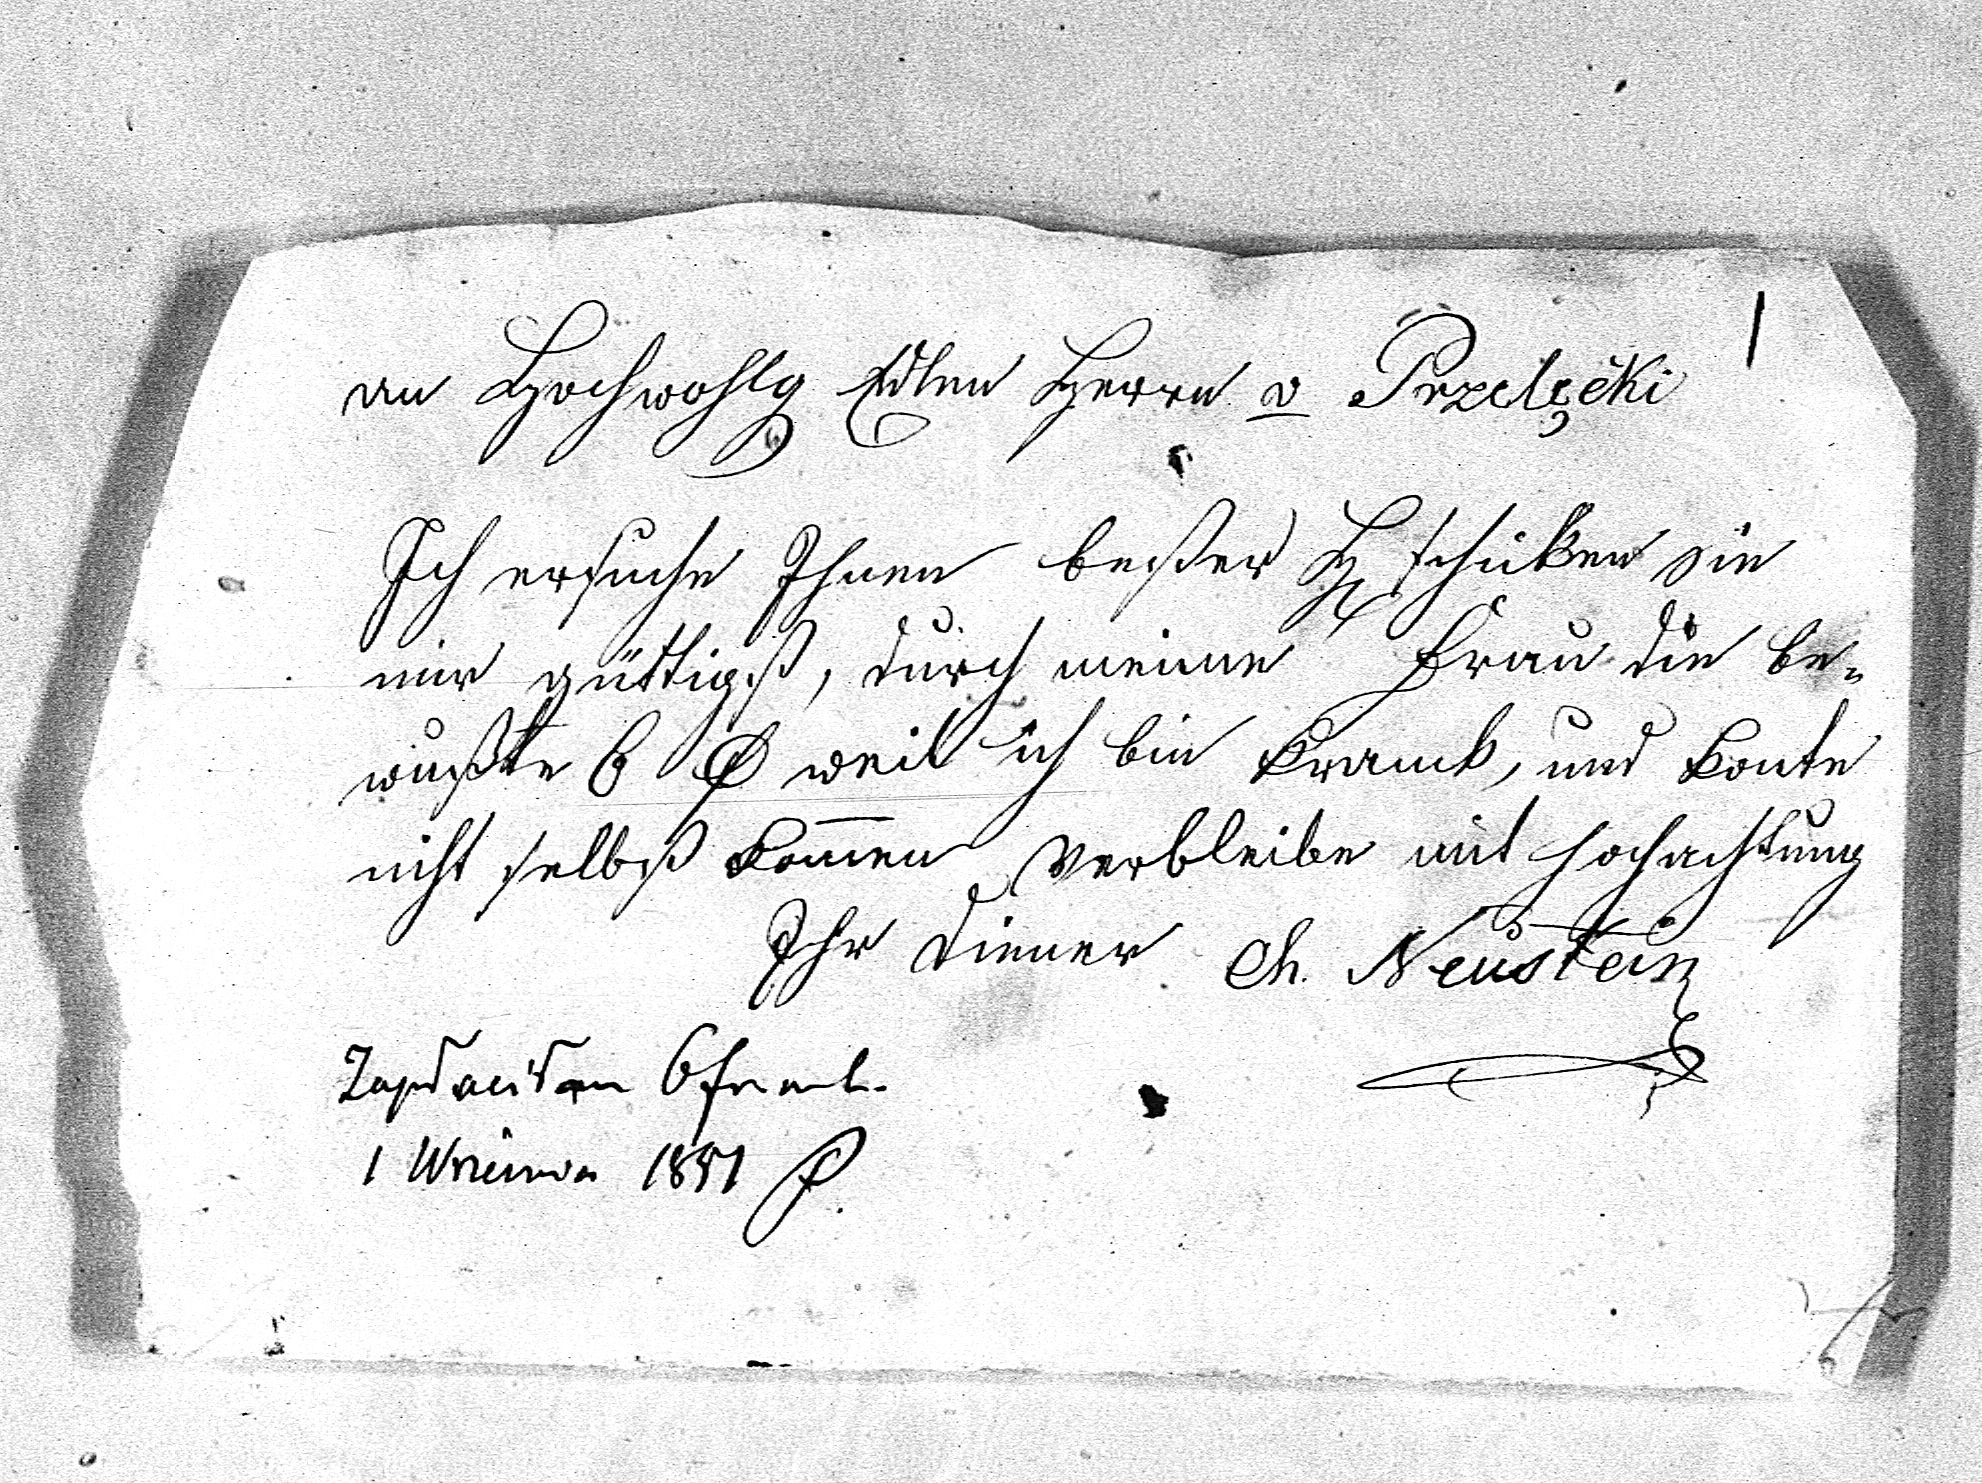 an Hochwohlg Edlen Herrn v Przelęcki
Ich ersuche Ihnen beßer H schicken sie
mir güttigst, durch meine Frau die be=
wußte 6 f weil ich bin Kranck, und Konte
nicht selbst Komen verbleibe mit Hochachtung
Ihr Diener Ch. Neustein
6
1 Września 1851